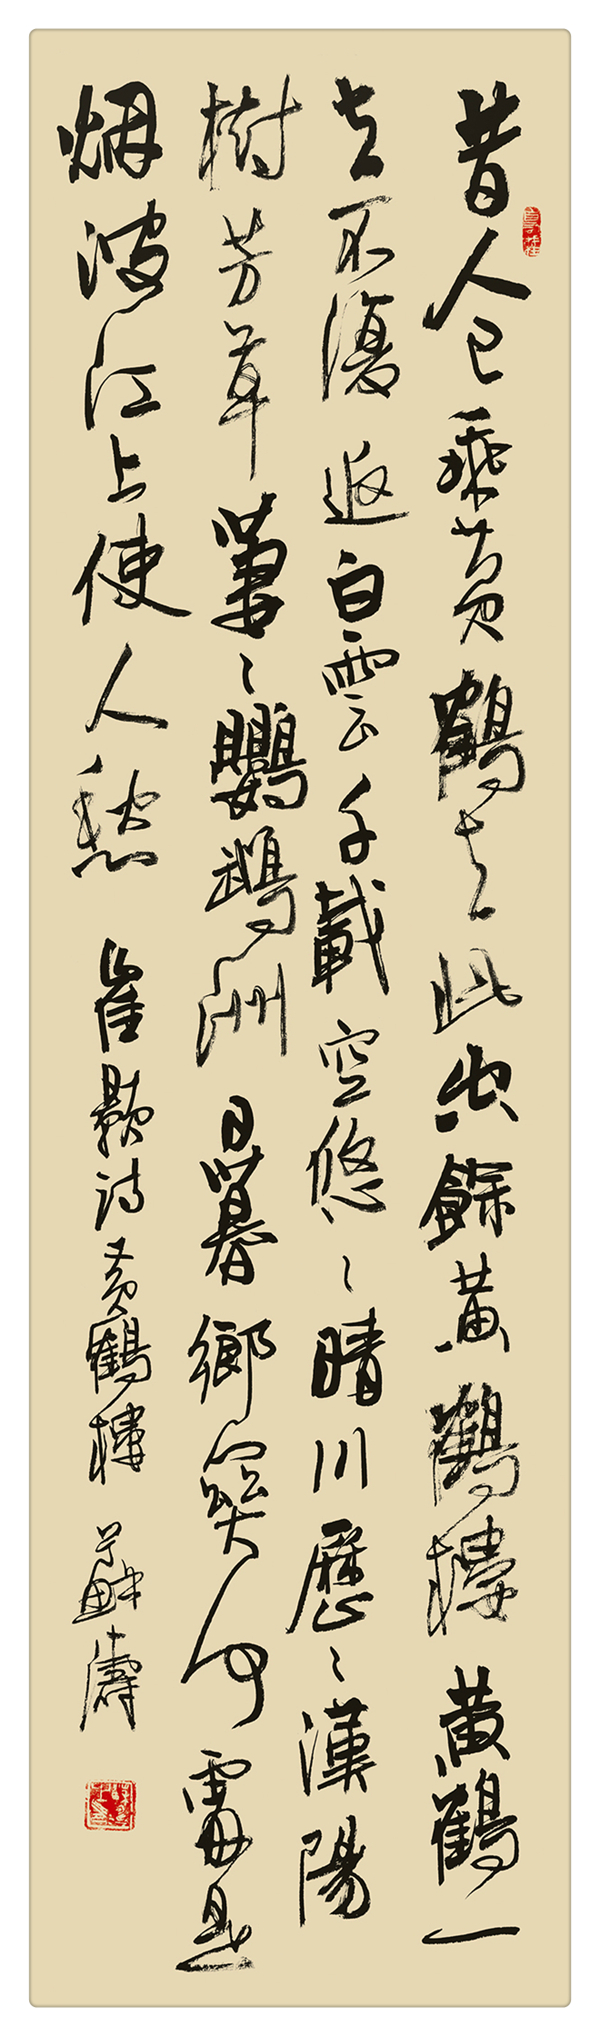 昔人已乘黄鶴去此餘黄鶴樓黄鶴一
去不復返白雲千載空悠〻晴川歷〻漢陽
樹芳草萋〻鸚鵡洲日暮鄉關何處是
烟波江上使人愁 崔顥詩黄鶴樓 蘇濤